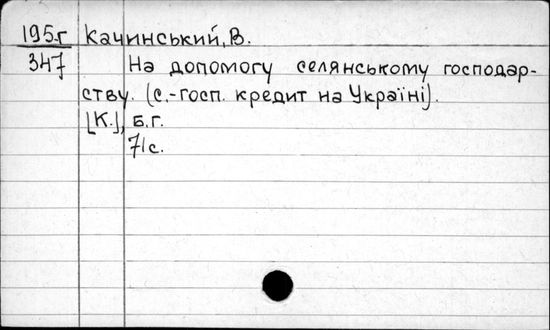 195г Качинський, В.
347 На допомогу селянському господар-
ству. (с.-госп. кредит на Україні).
[К.], б.г.
71с.